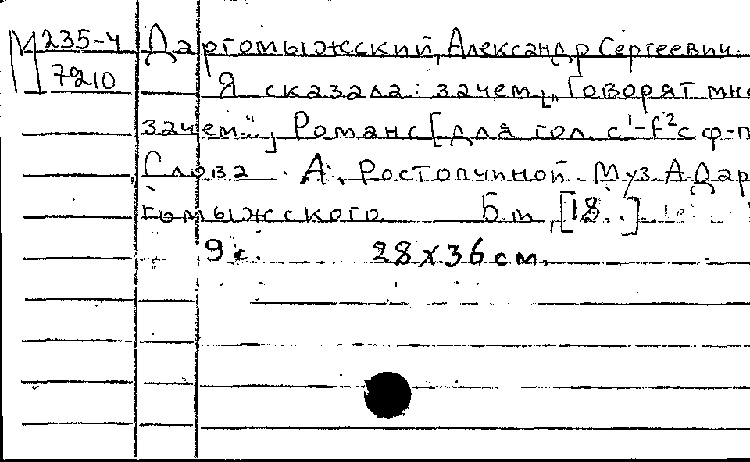 М 235-4 Даргомыжский, Александр Сергеевич.
7210 Я сказала: зачем, „Говорят мне
зачем", Романс [для гол. c¹-f² с ф-п
Слова А. Ростопчиной. Муз. А Дар
гомыжского Бм, [18..]
9 с. 28 x 36 см.